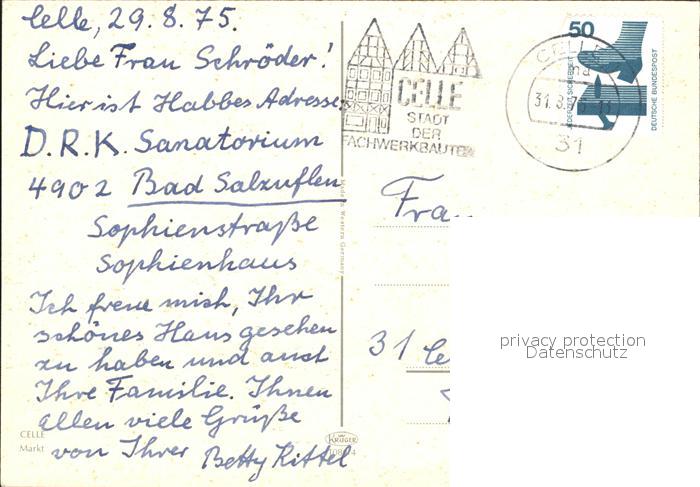 Celle, 29.8.75.
Liebe Frau Schröder!
Hier ist Habbes Adresse
D.R.K. Sanatorium
4902 Bad Salzuflen
Sophienstraße
Sophienhaus
Ich freue mich, Ihr
schönes Haus gesehen
zu haben und auch
Ihre Familie. Ihnen
allen viele Grüße
von Ihrer Betty Kittel
CELLE
Markt
Made in Western Germany
KRÜGER
CELLE
STADT
DER
FACHWERKBAUTEN
CELLE
31.8.75
31
50
JEDERZEIT SICHERHEIT
DEUTSCHE BUNDESPOST
Fra
31 Ce
privacy protection
Datenschutz